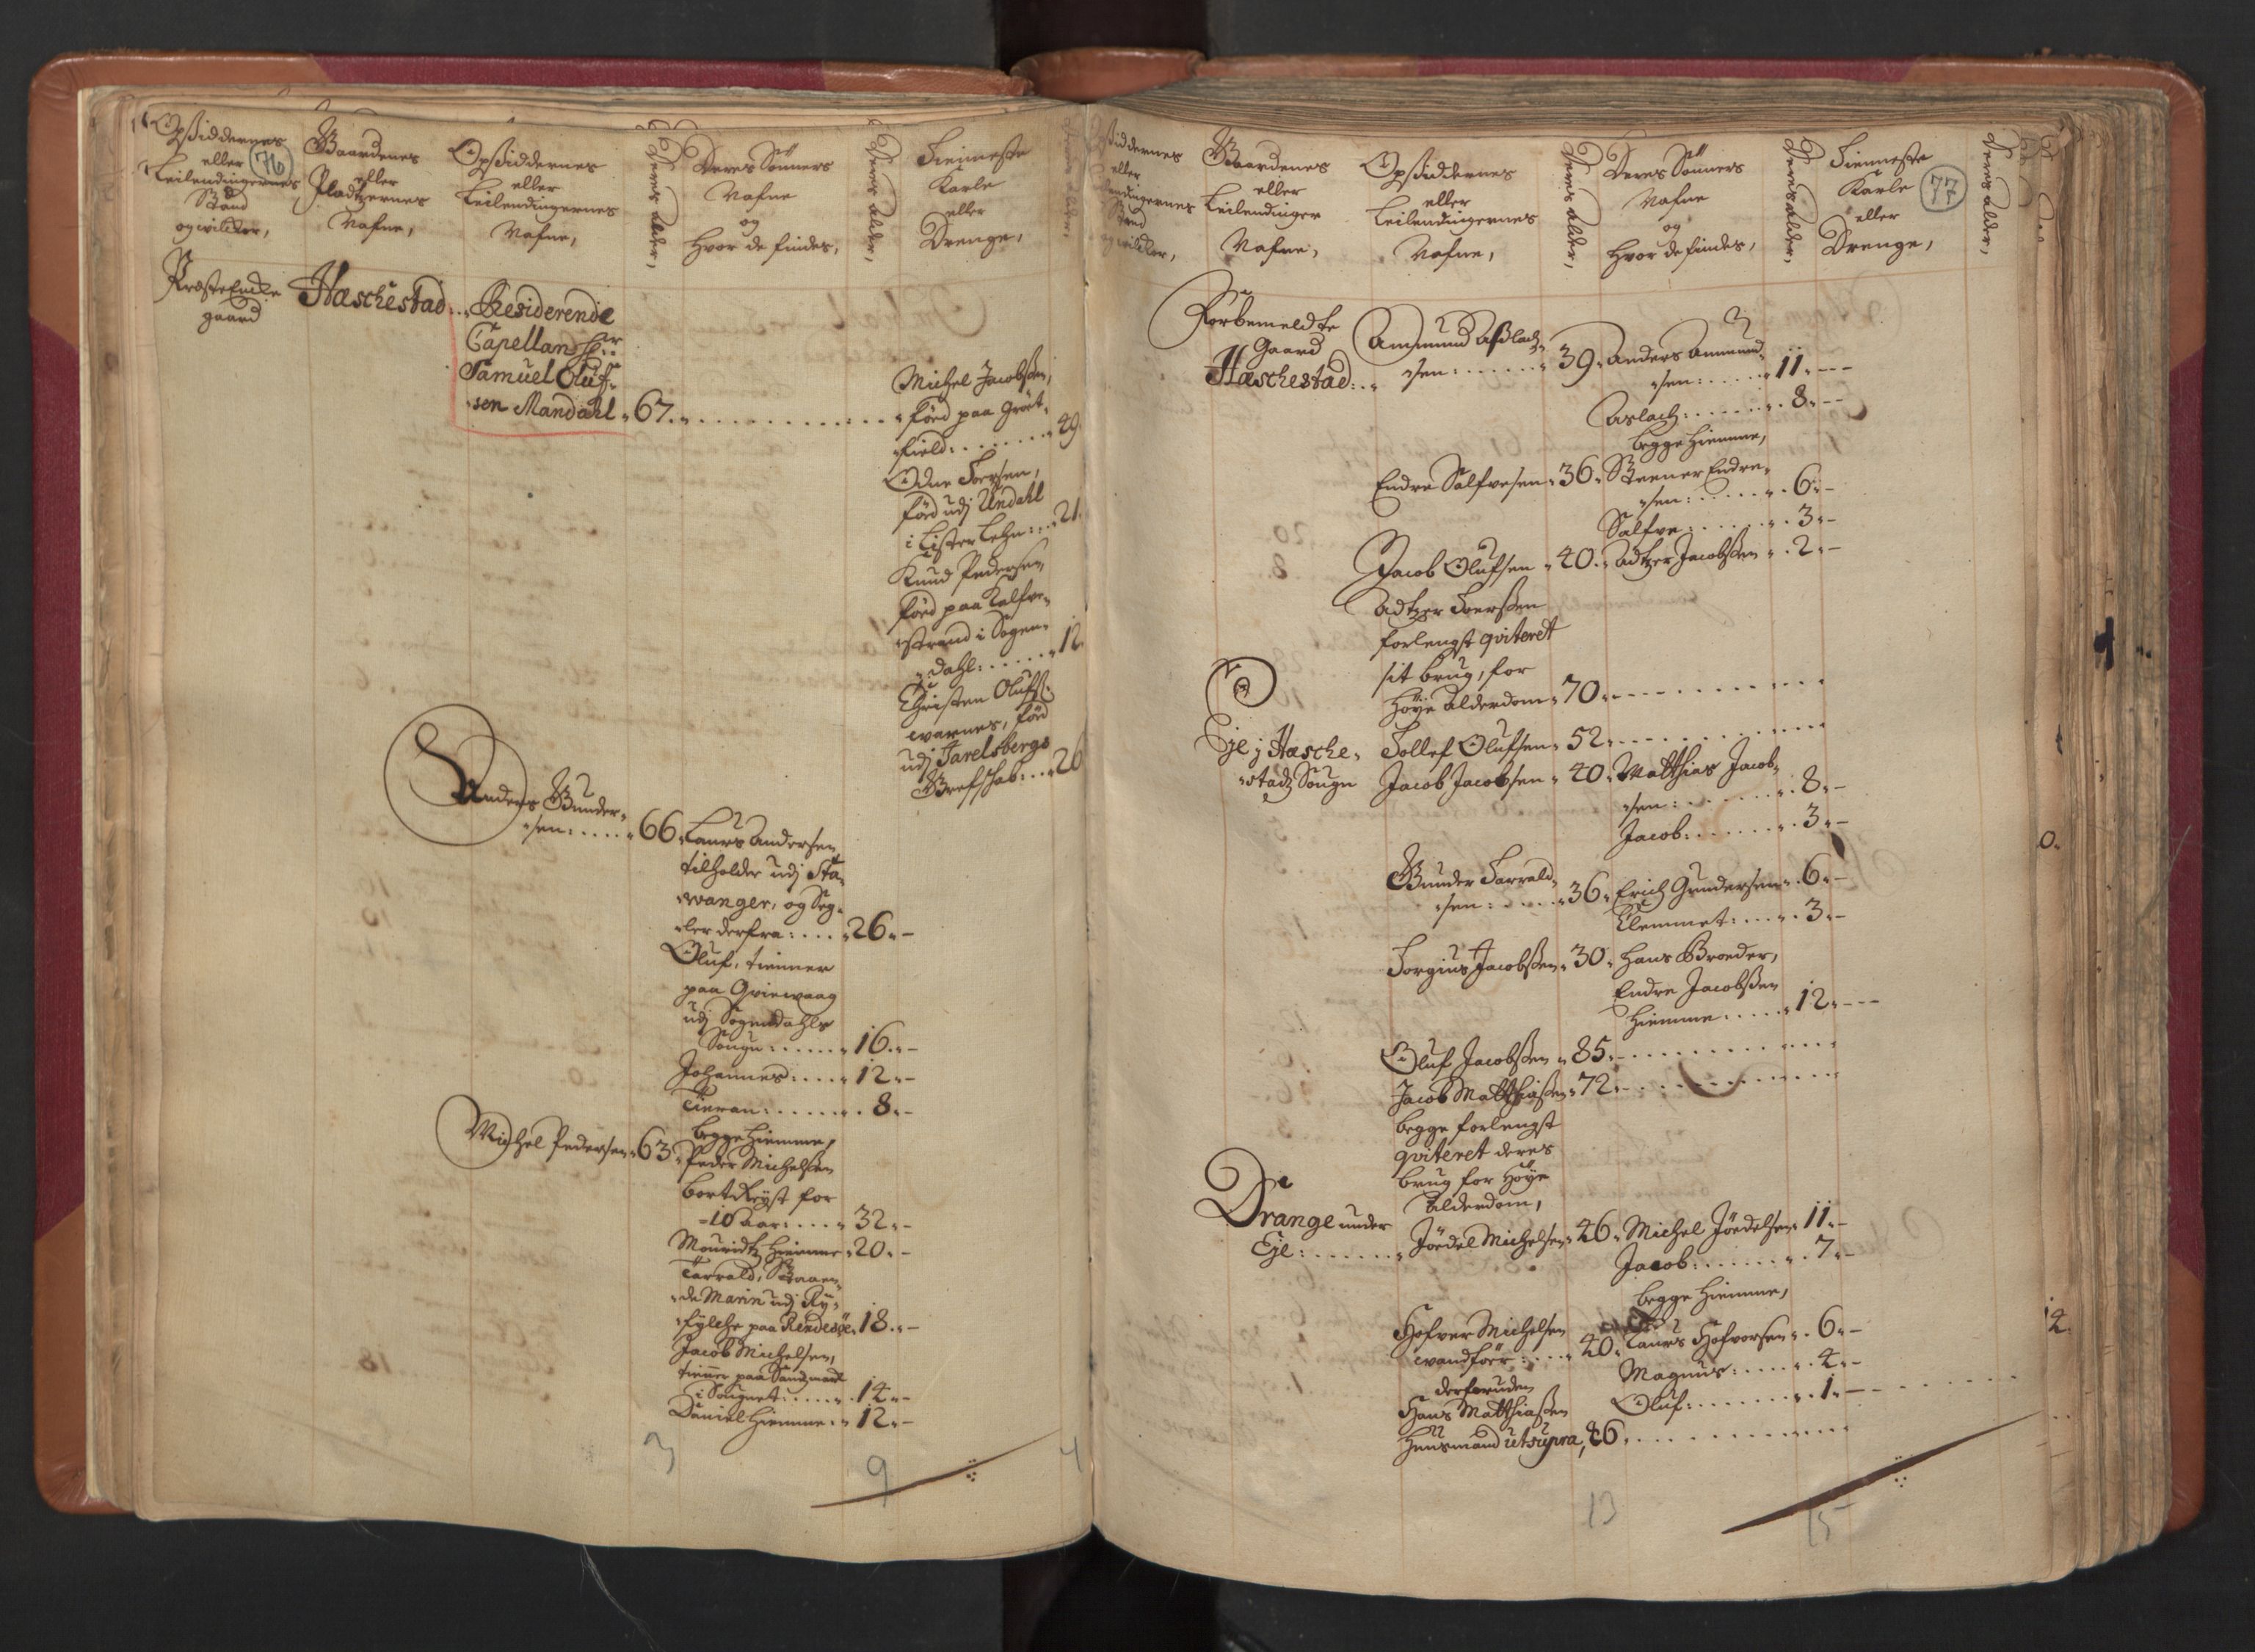 76
Opsiddernes
eller
Leilendingernes
Stand
og wilckor,
Gaardenes
eller
Pladtzernes
Nafne,
Opsiddernes
eller
Leilendingernes
Nafne,
Deres alder,
Deres Sönners
Nafne
og
hvor de findes,
Deres alder,
Tieniste
Karle
eller
Drenge,
Præste Encke
gaard
Hæschestad
Residerende
Capellan Hr:
Samuel Oluf-
sen Mandahl 67
Michel Jacobsen,
föed paa Gröet-
field: 49
Odne Torsen,
föed udj Undahl
i Lister Lehn: 21
Knud Pedersen,
föed paa Kalfve-
strand i Sogen-
dahl: 12
Christen Olufs:
warnes, föed
udj Jarelsbergs
Grefschab: 26
Anders Gunder-
sen: 66
Laurs Andersen
tilholder udj Sta-
wanger, og Seg-
ler derfra: 26
Oluf, tienner
paa Qviewaag
udj Sogendahls
Sougn: 16
Johannes: 12
Tieran: 8
begge hiemme,
Michel Pedersen 63
Peder Michelsen
bortReyst for
10 aar: 32
Mouridtz hiemme 20
Tarrald, Staaen-
de Marin udj Ry-
fylche paa Rendesöe 18
Jacob Michelsen,
tienner paa Sandmael
i Sougnet: 14
Daniel hiemme: 12
3
9
4
77
Opsiddernes
eller
Leilendingernes
Stand
og wilckor,
Gaardenes
eller
Leilendinger
Nafne,
Opsiddernes
eller
Leilendingernes
Nafne,
Deres alder,
Deres Sönners
Nafne
og
hvor de findes,
Deres alder,
Tienneste
Karle
eller
Drenge,
Deres alder,
Forbemeldte
Gaard
Hæschestad:
Ammund Aslach-
sen: 39
Anders Ammund-
sen: 11
Aslach: 8
begge hiemme,
Endre Salfvesen 36
Steener Endre-
sen: 6
Salfve: 3
Jacob Olufsen 40
Adtzer Jacobsen 2
Adtzer Torsen
forlengst qviteret
sit brug, for
höye alderdom 70
Eje j Hæsche-
stadz Sougn
Tollef Olufsen 52
Jacob Jacobsen 40
Matthias Jacob-
sen: 8
Jacob: 3
Gunder Tarrald-
sen: 36
Erich Gundersen 6
Clemmet: 3
Torgius Jacobsen 30
hans Broeder,
Endre Jacobsen
hiemme 12
Oluf Jacobsen 85
Jacob Matthiasen 72
begge forlengst
qviteret deres
brug for höye
alderdom,
Drange under
Eje:
Jöedel Michelsen 46
Michel Jöedelsen 11
Jacob: 7
begge hiemme,
Hofver Michelsen
wandför: 40
Laurs Hofversen 6
Magnus: 4
Oluf: 1
derforuden
Hans Matthiasen
huusmand ut supra, 86
13
15